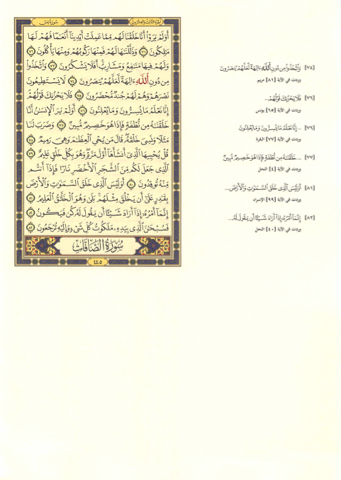 أَوَلَمْ يَرَوْا أَنَّا خَلَقْنَا لَهُم مِّمَّا عَمِلَتْ أَيْدِينَا أَنْعَٰمًا فَهُمْ لَهَا
مَٰلِكُونَ ٧١ وَذَلَّلْنَٰهَا لَهُمْ فَمِنْهَا رَكُوبُهُمْ وَمِنْهَا يَأْكُلُونَ ٧٢
وَلَهُمْ فِيهَا مَنَٰفِعُ وَمَشَارِبُ أَفَلَا يَشْكُرُونَ ٧٣ وَٱتَّخَذُوا
مِن دُونِ ٱللَّهِ ءَالِهَةً لَّعَلَّهُمْ يُنصَرُونَ ٧٤ لَا يَسْتَطِيعُونَ
نَصْرَهُمْ وَهُمْ لَهُمْ جُندٌ مُّحْضَرُونَ ٧٥ فَلَا يَحْزُنكَ قَوْلُهُمْ
إِنَّا نَعْلَمُ مَا يُسِرُّونَ وَمَا يُعْلِنُونَ ٧٦ أَوَلَمْ يَرَ ٱلْإِنسَٰنُ أَنَّا
خَلَقْنَٰهُ مِن نُّطْفَةٍ فَإِذَا هُوَ خَصِيمٌ مُّبِينٌ ٧٧ وَضَرَبَ لَنَا
مَثَلًا وَنَسِيَ خَلْقَهُۥ قَالَ مَن يُحْيِ ٱلْعِظَٰمَ وَهِيَ رَمِيمٌ ٧٨
قُلْ يُحْيِيهَا ٱلَّذِي أَنشَأَهَا أَوَّلَ مَرَّةٍ وَهُوَ بِكُلِّ خَلْقٍ عَلِيمٌ ٧٩
ٱلَّذِي جَعَلَ لَكُم مِّنَ ٱلشَّجَرِ ٱلْأَخْضَرِ نَارًا فَإِذَا أَنتُم
مِّنْهُ تُوقِدُونَ ٨٠ أَوَلَيْسَ ٱلَّذِي خَلَقَ ٱلسَّمَٰوَٰتِ وَٱلْأَرْضَ
بِقَٰدِرٍ عَلَىٰ أَن يَخْلُقَ مِثْلَهُم بَلَىٰ وَهُوَ ٱلْخَلَّٰقُ ٱلْعَلِيمُ ٨١
إِنَّمَا أَمْرُهُۥ إِذَا أَرَادَ شَيْـًٔا أَن يَقُولَ لَهُۥ كُن فَيَكُونُ ٨٢
فَسُبْحَٰنَ ٱلَّذِي بِيَدِهِۦ مَلَكُوتُ كُلِّ شَيْءٍ وَإِلَيْهِ تُرْجَعُونَ ٨٣
سُورَةُ الصَّافَّاتِ
٤٤٥
[٧٤] وَٱتَّخَذُوا مِن دُونِ ٱللَّهِ ءَالِهَةً لَّعَلَّهُمْ يُنصَرُونَ
وردت في الآية [٨١] مريم
[٧٦] فَلَا يَحْزُنكَ قَوْلُهُمْ...
وردت في الآية [٦٥] يونس
[٧٦] ... إِنَّا نَعْلَمُ مَا يُسِرُّونَ وَمَا يُعْلِنُونَ
وردت في الآية [٧٧] البقرة
[٧٧] ... خَلَقْنَٰهُ مِن نُّطْفَةٍ فَإِذَا هُوَ خَصِيمٌ مُّبِينٌ
وردت في الآية [٤] النحل
[٨١] أَوَلَيْسَ ٱلَّذِي خَلَقَ ٱلسَّمَٰوَٰتِ وَٱلْأَرْضَ...
وردت في الآية [٩٩] الإسراء
[٨٢] إِنَّمَا أَمْرُهُۥ إِذَا أَرَادَ شَيْـًٔا أَن يَقُولَ لَهُۥ...
وردت في الآية [٤٠] النحل